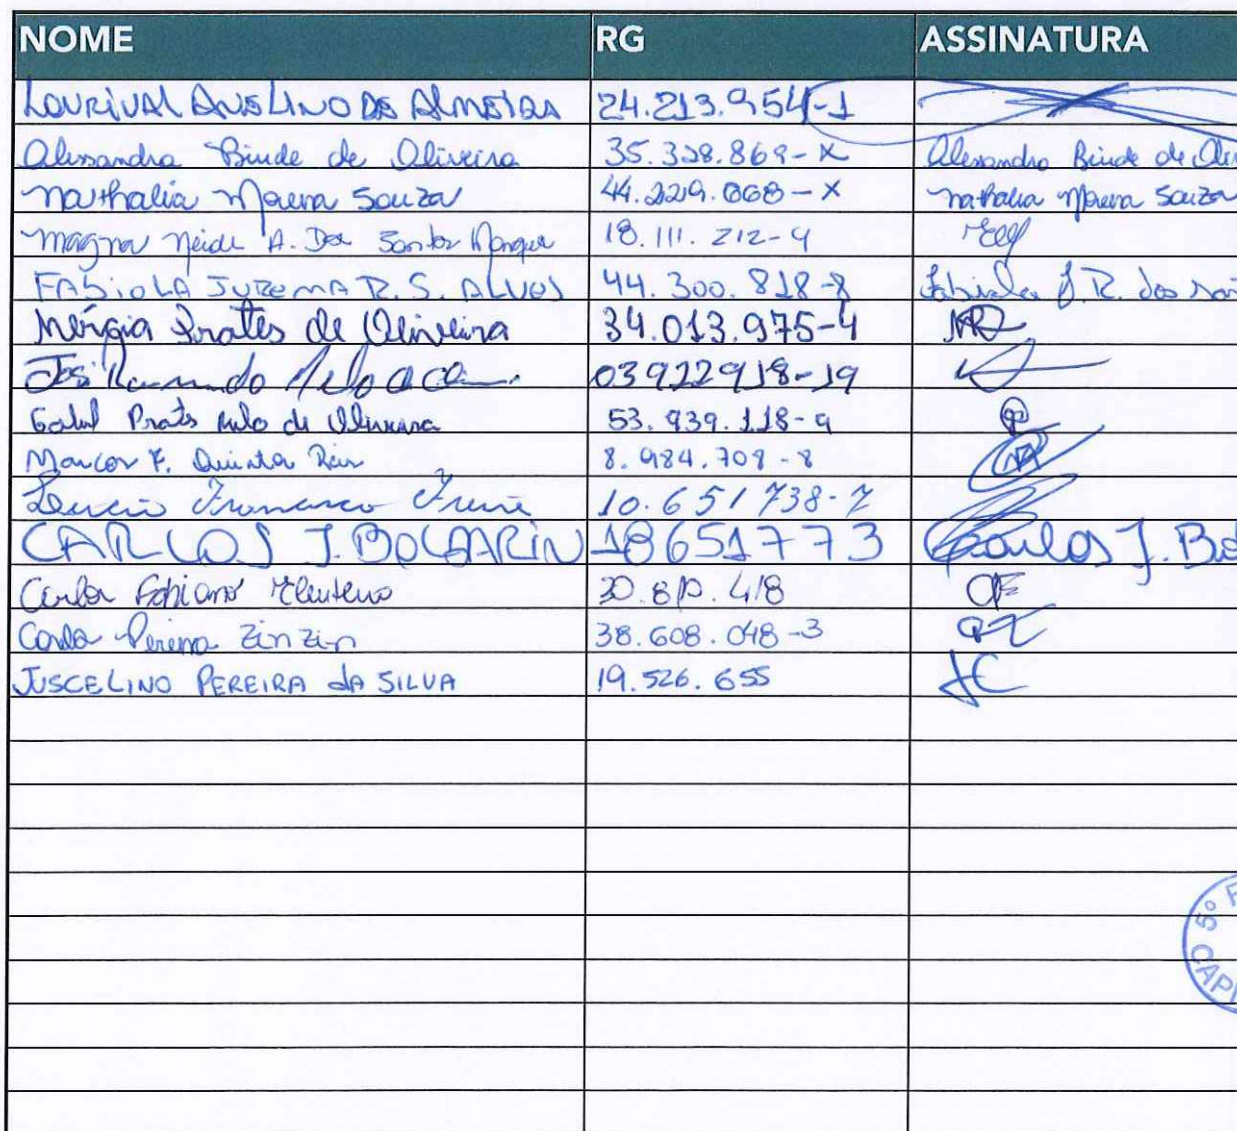 NOME RG ASSINATURA
LOURIVAL AVELINO DE ALMEIDA 24.213.954-1
Alessandra Binde de Oliveira 35.328.868-X Alessandra Binde de Oliv
Nathalia Moura Souza 44.229.668-X Nathalia Moura Souza
Magna Neide A. Dos Santos Marque 18.111.212-4
FABIOLA JUREMA R.S. ALVES 44.300.818-8 Fabiola J.R. dos
Nérgia Prates de Oliveira 34.013.975-4
José Raimundo Melo 03922918-19
Prates Melo de Oliveira 53.939.118-9
Marcos F. Quinta Reis 8.984.708-8
Lucio Francisco Freire 10.651738-7
CARLOS J. BOLGARIN 18651773 Carlos J. Bol
Carlos Fabiano Eleuterio 30.810.418 CF
Carla Pereira Zinzin 38.608.048-3
JUSCELINO PEREIRA dA SILVA 19.526.655 JC
5º
CAPI